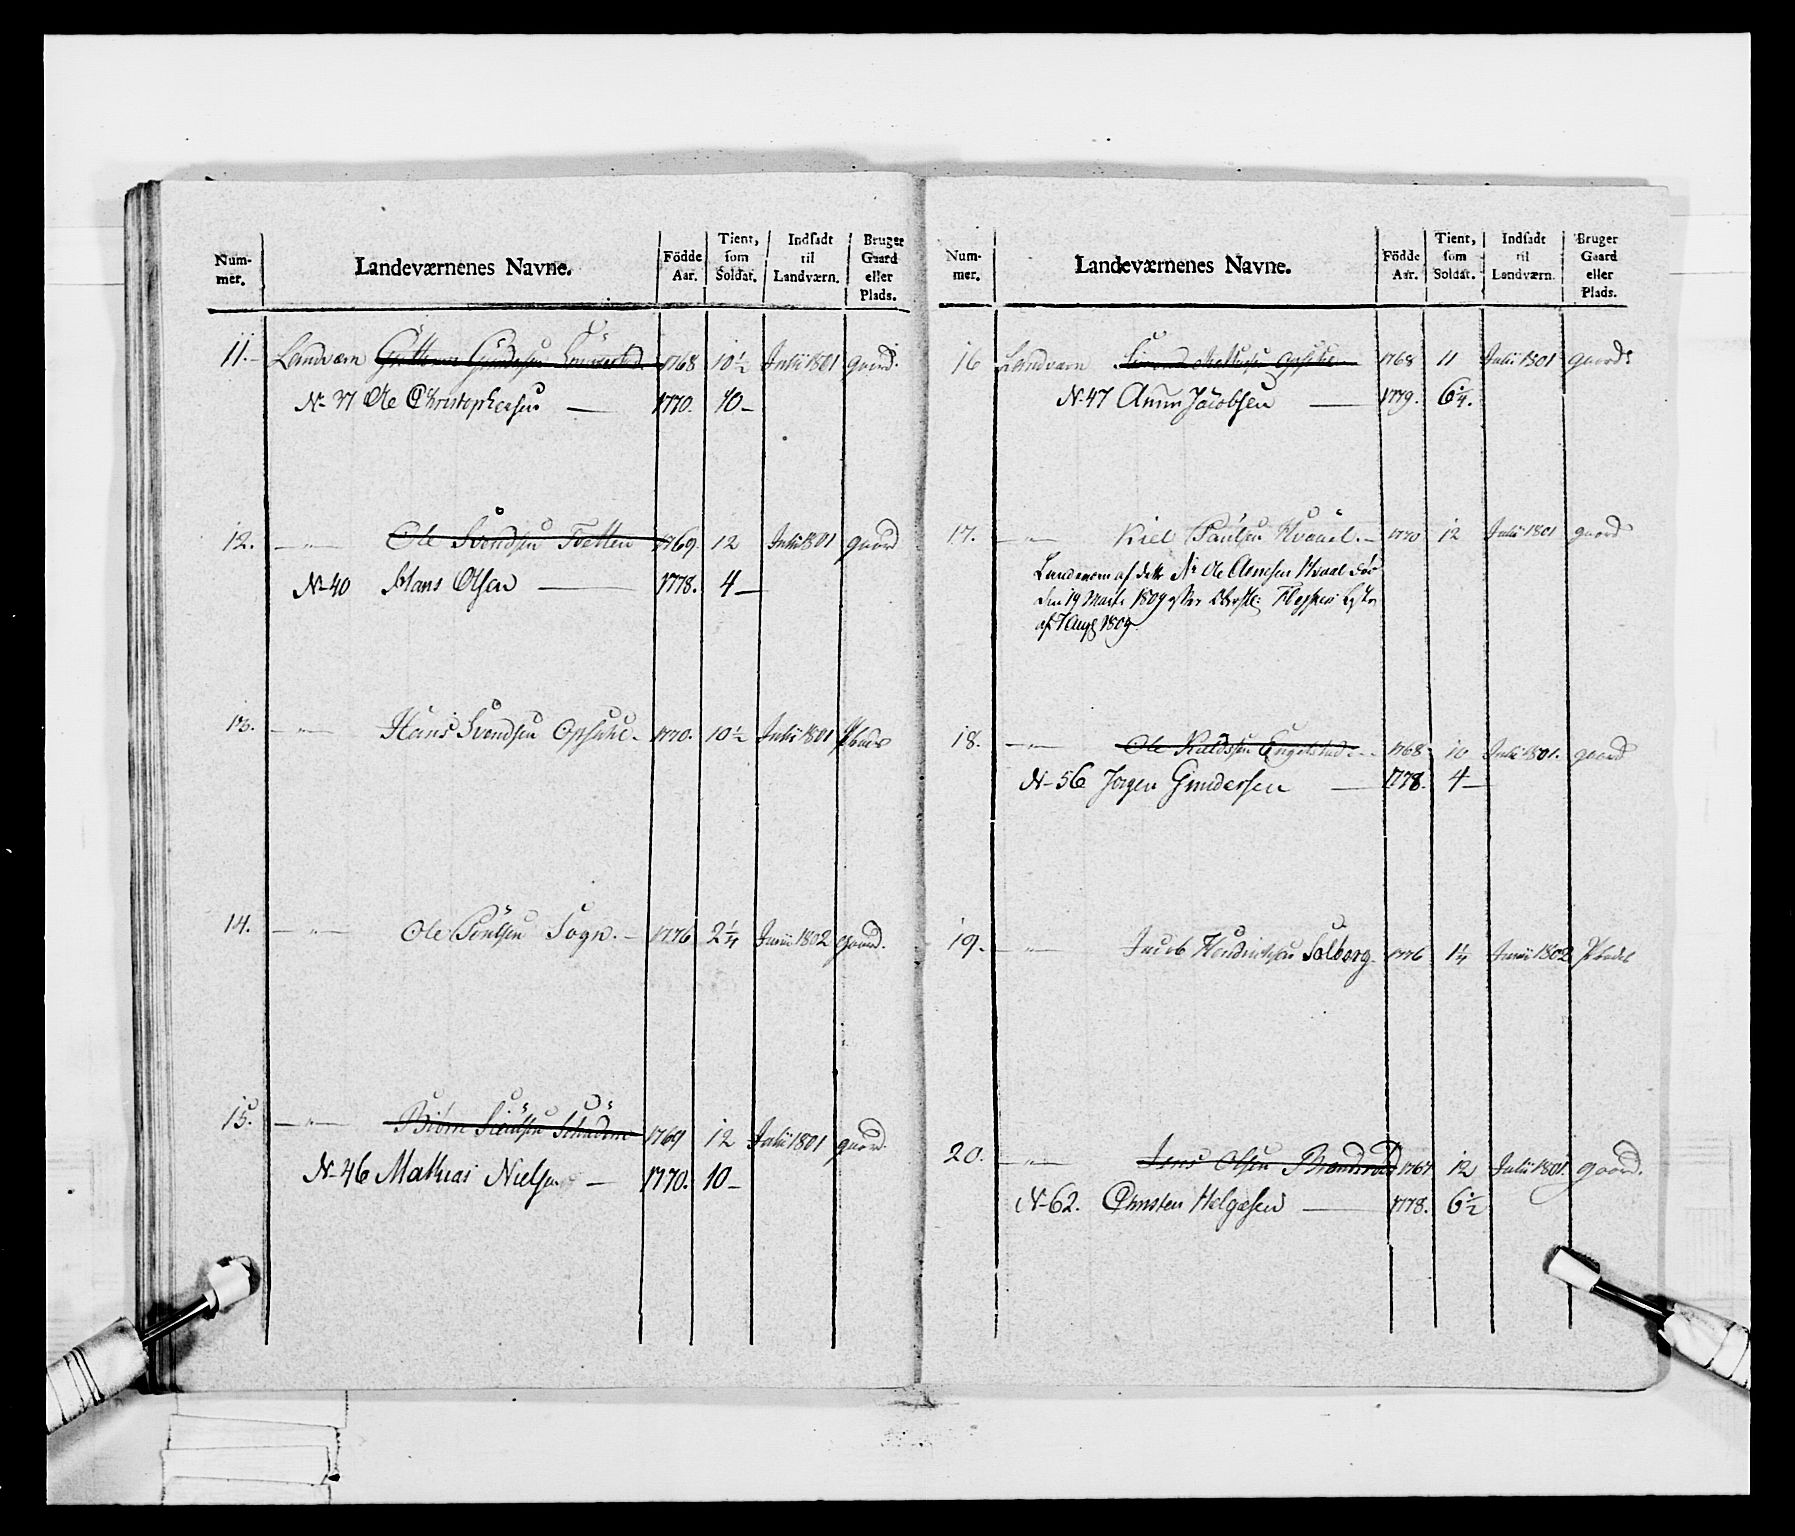 Num-
mer.
Landeværnenes Navne.
Födde
Aar.
Tient,
som
Soldat.
Indsadt
til
Landværn.
Bruger
Gaard
eller
Plads.
11. Landværn 1768 10½ Julii 1801 gaard.
Ole Christophersen — 1770. 10 —
12. — " — Ole Svendsen Tvetten 1769 12 Julii 1801 gaard
No 40 Hans Olsen — 1778. 4 —
13. — " — Hans Svendsen Opsahl. 1770. 10½ Julii 1801 Plads
14. — " — Ole Poulsen Sogn. — 1776 2¼ Junii 1802 gaard.
15. — " — 1769 12 Julii 1801 gaard.
No 46 Mathias Nielsen — 1770. 10 —
Num-
mer.
Landeværnenes Navne.
Födde
Aar.
Tient,
som
Soldat.
Indsadt
til
Landværn.
Bruger
Gaard
eller
Plads.
16 Landværn 1768 11 Julii 1801 gaard
No 47 Jacobsen — 1779. 6¼.
17. — " — Kiel Paulsen — 1770 12 Julii 1801 gaard
af dette Nr Ole Arnesen
den 19 Marti 1809
af Aug 1809.
18. — " — Ole Engelstad 1768 10 Julii 1801. gaard
No 56 Jorgen Gundersen — 1778. 4 —
19. — " — Jacob Hendrichsen Solberg. 1776 1¼ Junii 1802 Plads
20. — " — Jens Olsen 1767 12 Julii 1801. gaard.
No 62. Christen Helgesen — 1778. 6½